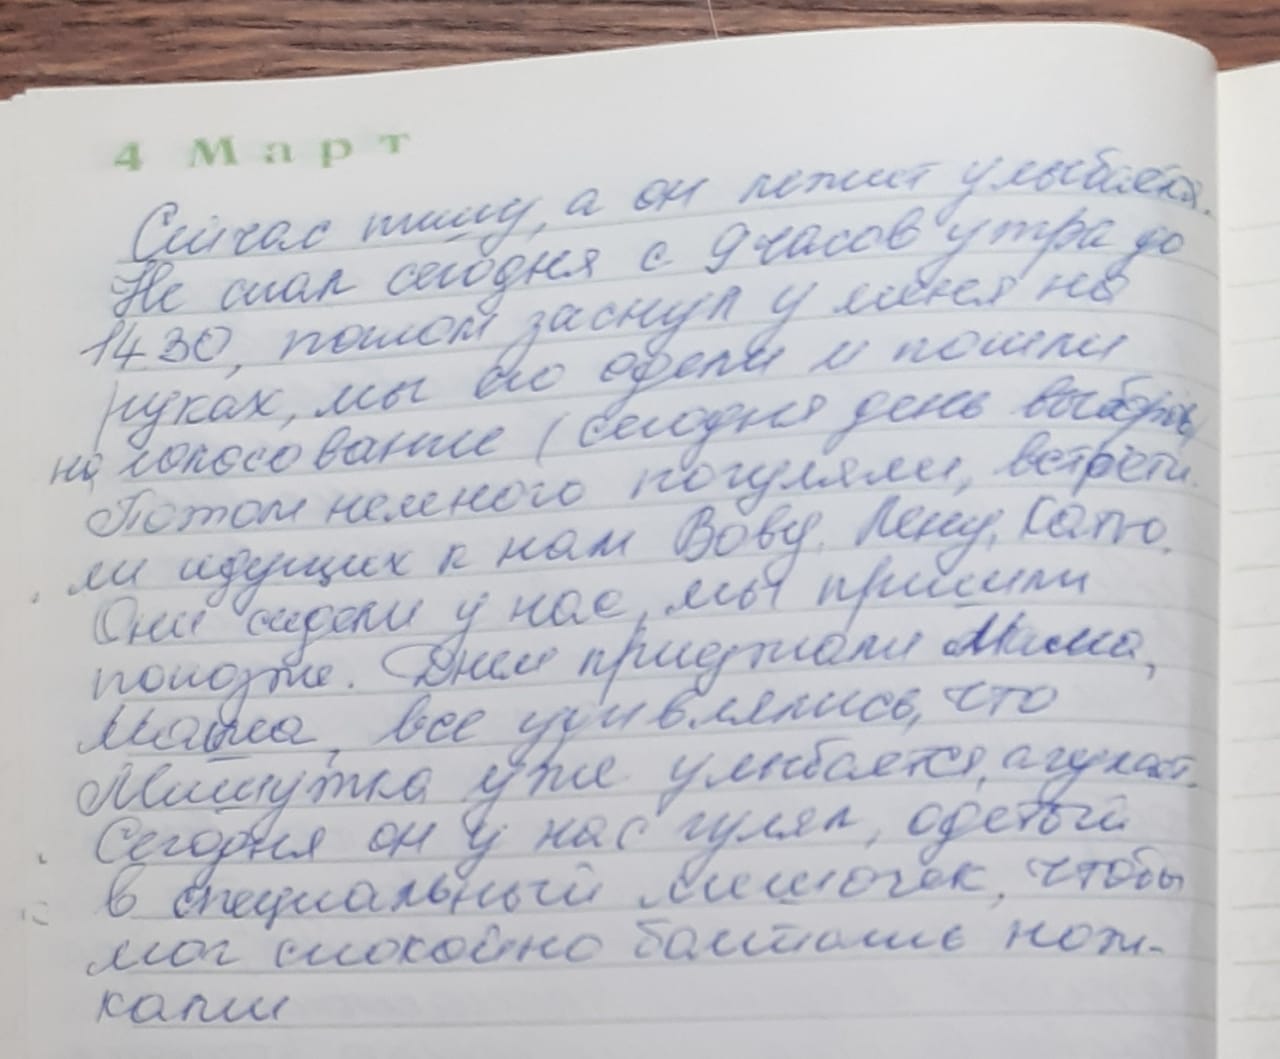 4 Март
Сейчас пишу, а он лежит улыбается.
Не спал сегодня с 9 часов утра до
14 30, потом заснул у меня на
руках, мы его одели и пошли
на голосование (сегодня день выборов)
Потом немного погуляли, встрети-
ли идущих к нам Вову, Лену, Катю.
Они сидели у нас, мы пришли
попозже. Днем приезжали Мама,
Маша, все удивлялись, что
Мишутка уже улыбается, агукает.
Сегодня он у нас гулял, одетый
в специальный мешочек, чтобы
мог спокойно болтать нож-
ками